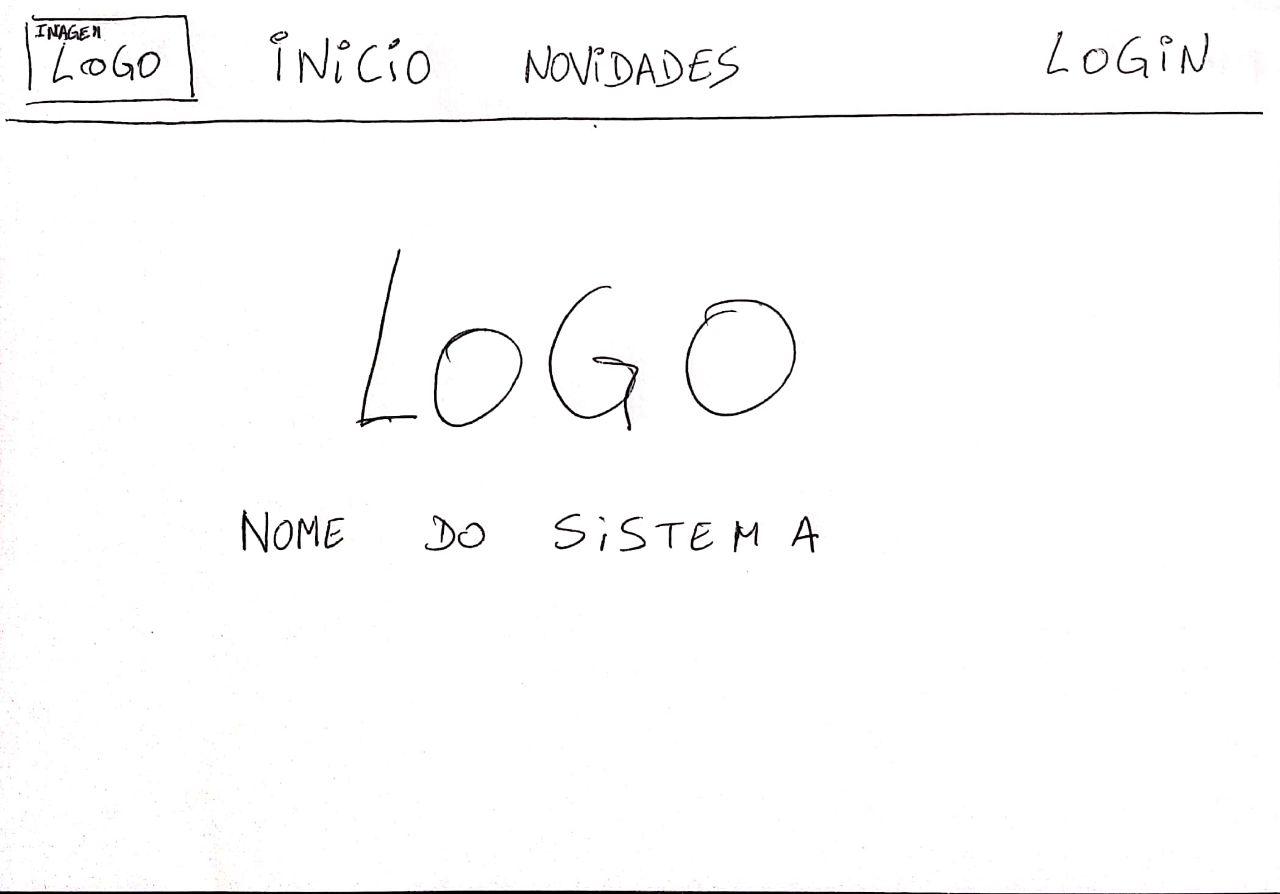 IMAGEM
LOGO
INICIO NOVIDADES LOGIN
LOGO
NOME DO SISTEMA